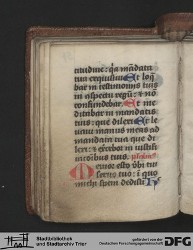 tudine: q̃a mãdata
tua exquisiui Et loq̃
bar in testimoniis tuis
in ɔspectu regũ: ⁊ nõ
confundebar. Et me
ditabar in mandatis
tuis: que dilexi Et le
uaui manus meas ad
mandata tua que di
lexi: ⁊
tuis.
serui tuo: i quo
michi spem dedisti
Stadtbibliothek
und Stadtarchiv Trier
gefördert von der
Deutschen Forschungsgemeinschaft
DFG